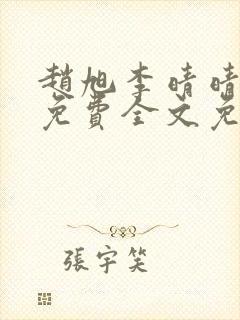 趙旭李晴晴
免費全文免
張宇笑